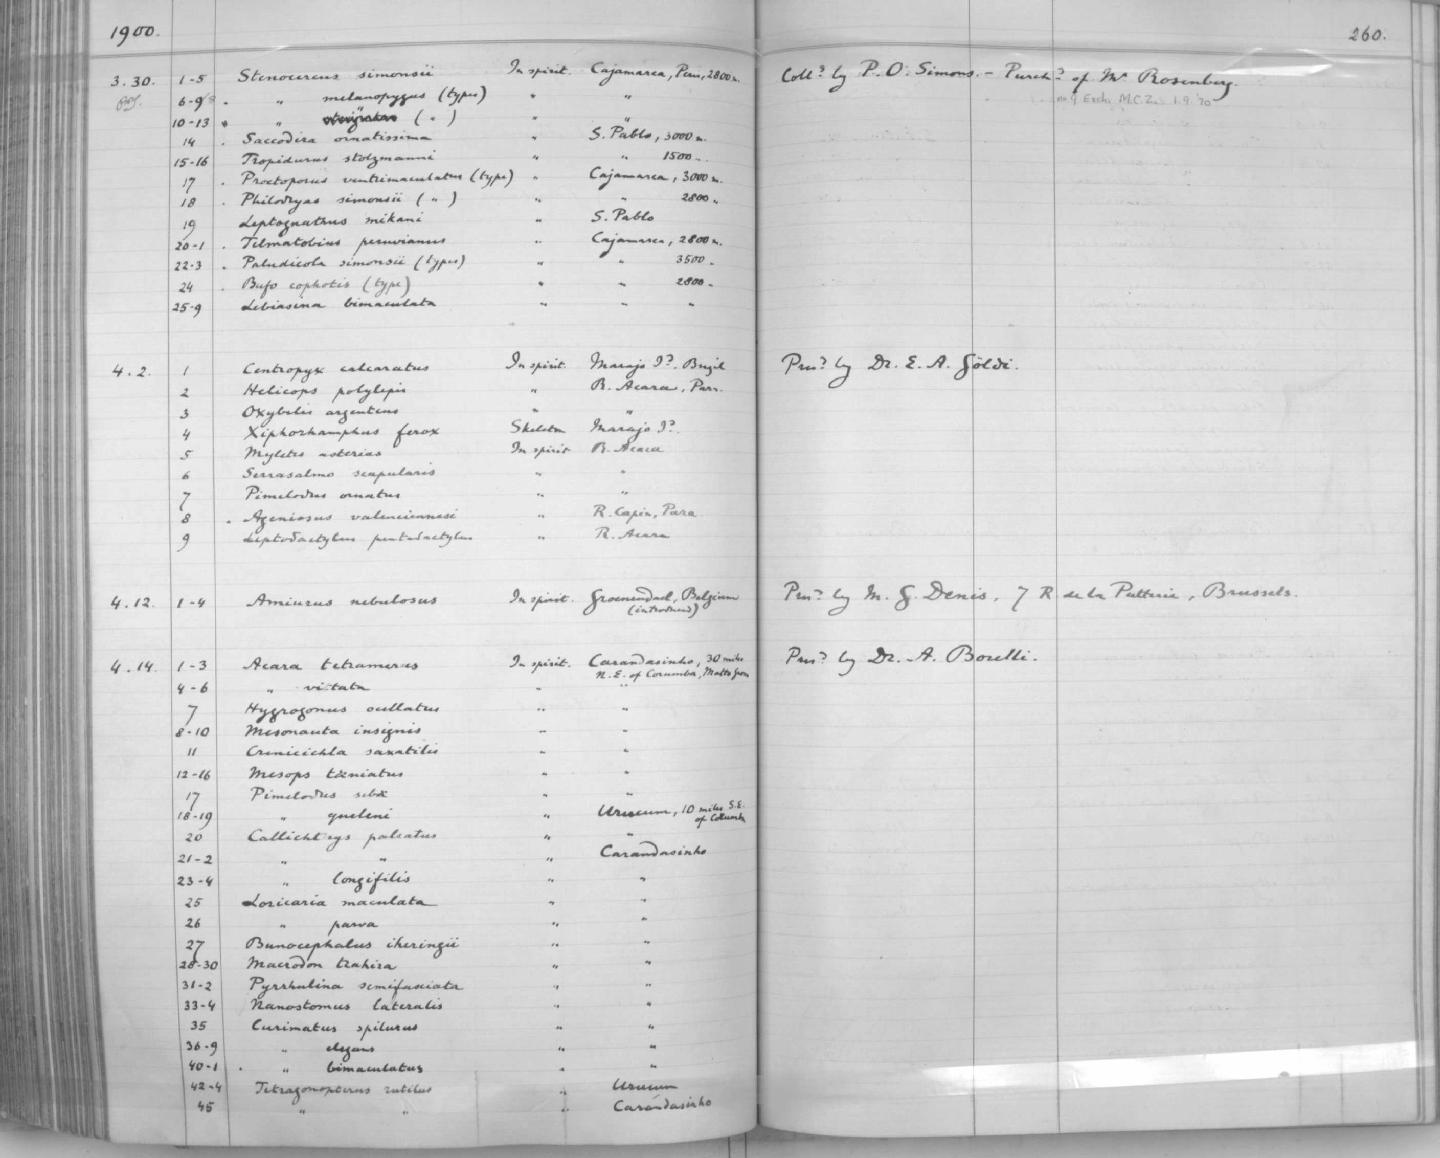 1900. 260.
3.30. 1-5 Stenocercus simonsii In spirit. Cajamarca, Peru, 2800 m. Colld by P.O. Simons. - Purchd of Mr Rosenberg.
6-9 " melanopygus (types) " " no 9 Exch. M.C.Z. 1.9.30
10-13 " ( " ) " "
14 Saccodira ornatissima " S. Pablo, 3000 m.
15-16 Tropidurus stolzmanni " " 1500 "
17 Proctoporus ventrimaculatus (type) " Cajamarca, 3000 m.
18 Philodryas simonsii ( " ) " " 2800 "
19 Leptognathus mikani " S. Pablo
20-1 Telmatobius peruvianus " Cajamarca, 2800 m.
22-3 Paludicola simonsii (types) " " 3500 "
24 Bufo cophotis (type) " " 2800 "
25-9 Lebiasina bimaculata " " "
4.2. 1 Centropyx calcaratus In spirit. Marajo Id. Brazil Presd by Dr. E. A. Göldi.
2 Helicops polylepis " R. Acara, Para.
3 Oxybelis argenteus " "
4 Xiphorhamphus ferox Skeleton Marajo Id.
5 Myletes asterias In spirit R. Acara
6 Serrasalmo scapularis " "
7 Pimelodus ornatus " "
8 Ageniosus valenciennesi " R. Capin, Para
9 Leptodactylus pentadactylus " R. Acara
4.12. 1-4 Amiurus nebulosus In spirit. Groenendael, Belgium Presd by M. G. Denis, 7 R. de la Putterie, Brussels.
(introduced)
4.14. 1-3 Acara tetramerus In spirit. Carandasinho, 30 miles Presd by Dr. A. Borelli.
N.E. of Corumba, Matto Grosso
4-6 " vittata " "
7 Hygrogonus ocellatus " "
8-10 Mesonauta insignis " "
11 Crenicichla saxatilis " "
12-16 Mesops tæniatus " "
17 Pimelodus sebæ " "
18-19 " gnelini " Urucum, 10 miles S.E.
of Corumba
20 Callichthys paleatus " "
21-2 " " " Carandasinho
23-4 " longifilis " "
25 Loricaria maculata " "
26 " parva " "
27 Bunocephalus iheringii " "
28-30 Macrodon trahira " "
31-2 Pyrrhulina semifasciata " "
33-4 Nanostomus lateralis " "
35 Curimatus spilurus " "
36-9 " elegans " "
40-1 " bimaculatus " "
42-4 Tetragonopterus rutilus " Urucum
45 " " " Carandasinho